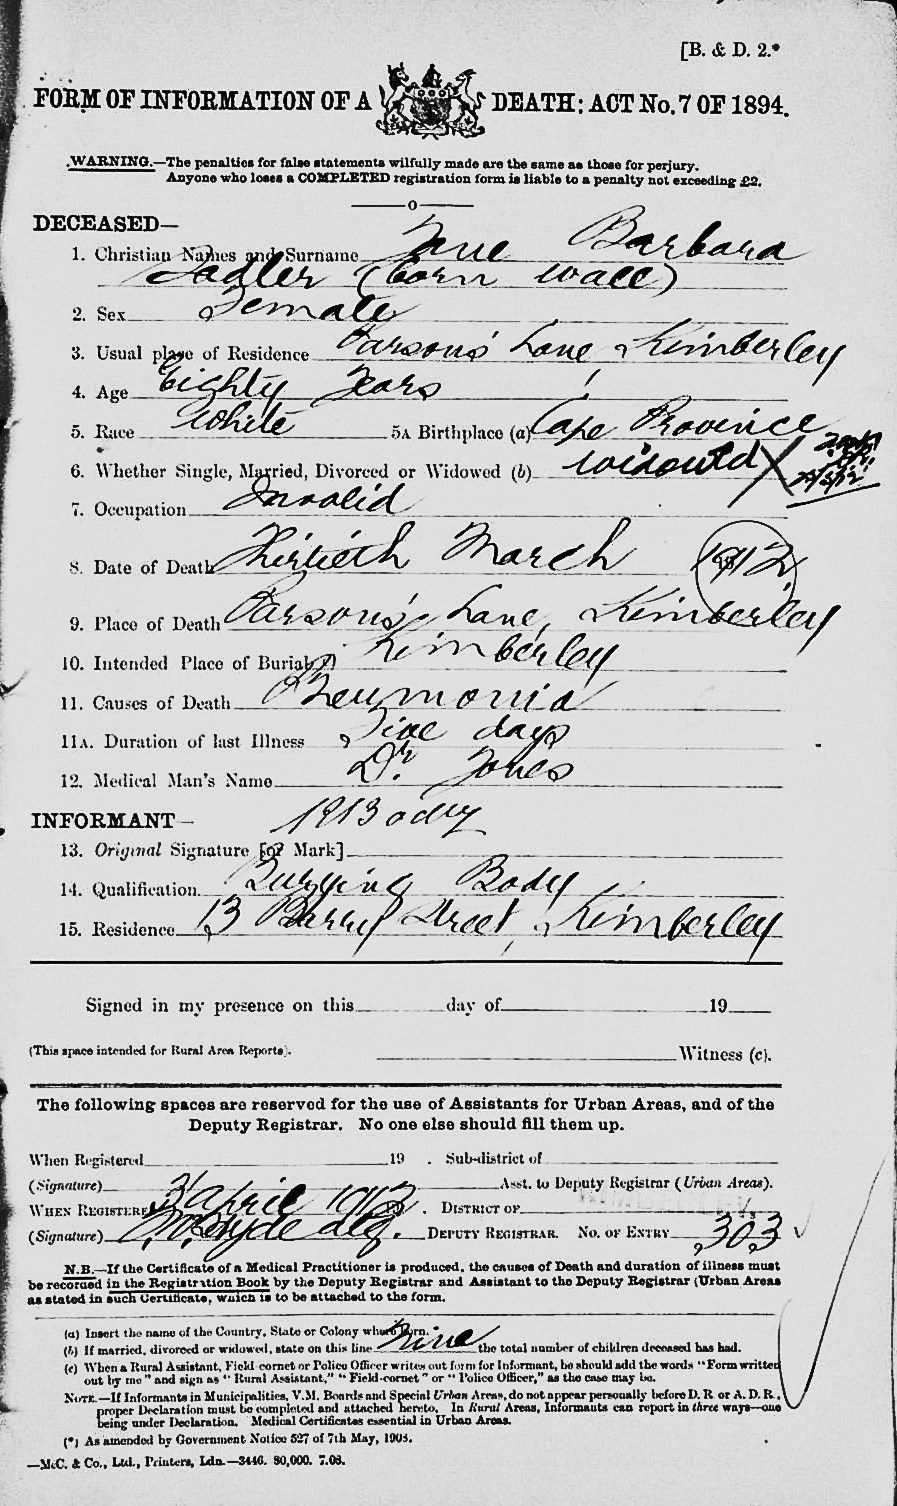 [B. & D. 2.*
FORM OF INFORMATION OF A DEATH: ACT No. 7 OF 1894.
WARNING.—The penalties for false statements wilfully made are the same as those for perjury.
Anyone who loses a COMPLETED registration form is liable to a penalty not exceeding £2.
DECEASED—
1. Christian Names and Surname Jane Barbara
Sadler (born Wall)
2. Sex Female
3. Usual place of Residence Parsons' Lane, Kimberley
4. Age Eighty Years
5. Race White 5A Birthplace (a) Cape Province
6. Whether Single, Married, Divorced or Widowed (b) Widowed X
7. Occupation Invalid
8. Date of Death Thirtieth March 1912
9. Place of Death Parsons' Lane, Kimberley
10. Intended Place of Burial Kimberley
11. Causes of Death Pneumonia
11A. Duration of last Illness Five days
12. Medical Man's Name Dr. Jones
INFORMANT—
13. Original Signature [or Mark]
14. Qualification Burying Body
15. Residence 13 Barry Street, Kimberley
Signed in my presence on this day of 19
(This space intended for Rural Area Reports). Witness (c).
The following spaces are reserved for the use of Assistants for Urban Areas, and of the
Deputy Registrar. No one else should fill them up.
When Registered 19 . Sub-district of
(Signature) Asst. to Deputy Registrar (Urban Areas).
WHEN REGISTERED 3 April 1912 . DISTRICT OF
(Signature) DEPUTY REGISTRAR. NO. OF ENTRY 303
N.B.—If the Certificate of a Medical Practitioner is produced, the causes of Death and duration of illness must
be recorded in the Registration Book by the Deputy Registrar and Assistant to the Deputy Registrar (Urban Areas
as stated in such Certificate, which is to be attached to the form.
(a) Insert the name of the Country, State or Colony where born.
(b) If married, divorced or widowed, state on this line Nine the total number of children deceased has had.
(c) When a Rural Assistant, Field-cornet or Police Officer writes out form for Informant, he should add the words "Form written
out by me" and sign as "Rural Assistant," "Field-cornet" or "Police Officer," as the case may be.
NOTE.—If Informants in Municipalities, V.M. Boards and Special Urban Areas, do not appear personally before D. R or A. D. R.,
proper Declaration must be completed and attached hereto. In Rural Areas, Informants can report in three ways—one
being under Declaration. Medical Certificates essential in Urban Areas.
(*) As amended by Government Notice 527 of 7th May, 1903.
—McC. & Co., Ltd., Printers, Ldn.—3446. 80,000. 7.08.